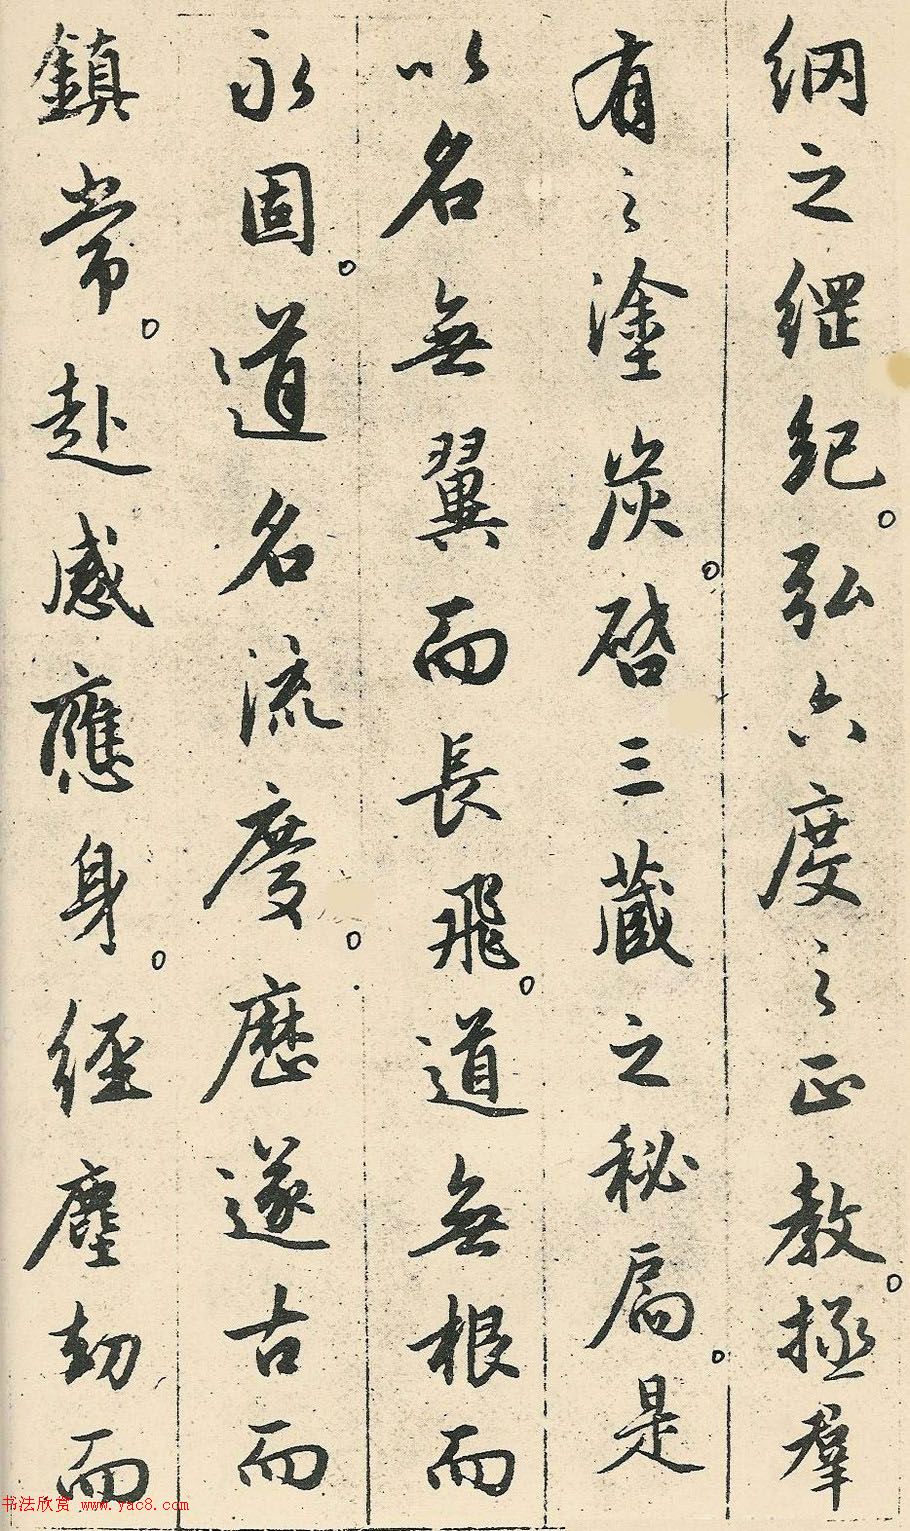 網之綱紀。弘六度之正教。拯羣
有之塗炭。啓三藏之秘扃。是
以名無翼而長飛。道無根而
永固。道名流慶。歷遂古而
鎮常。赴感應身。經塵劫而
书法欣赏 www.yac8.com